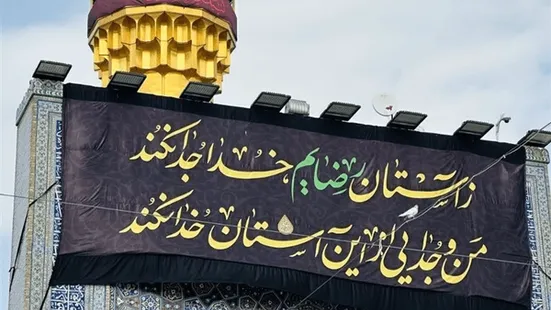 ز آستان رضایم خدا جدا نکند
من و جدایی از این آستان خدا نکند